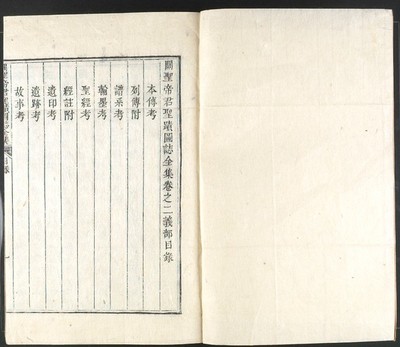 關聖帝君聖蹟圖誌全集卷之二義部目錄
本傳考
列傳附
譜系考
翰墨考
聖經考
經註附
遺印考
遺跡考
故事考